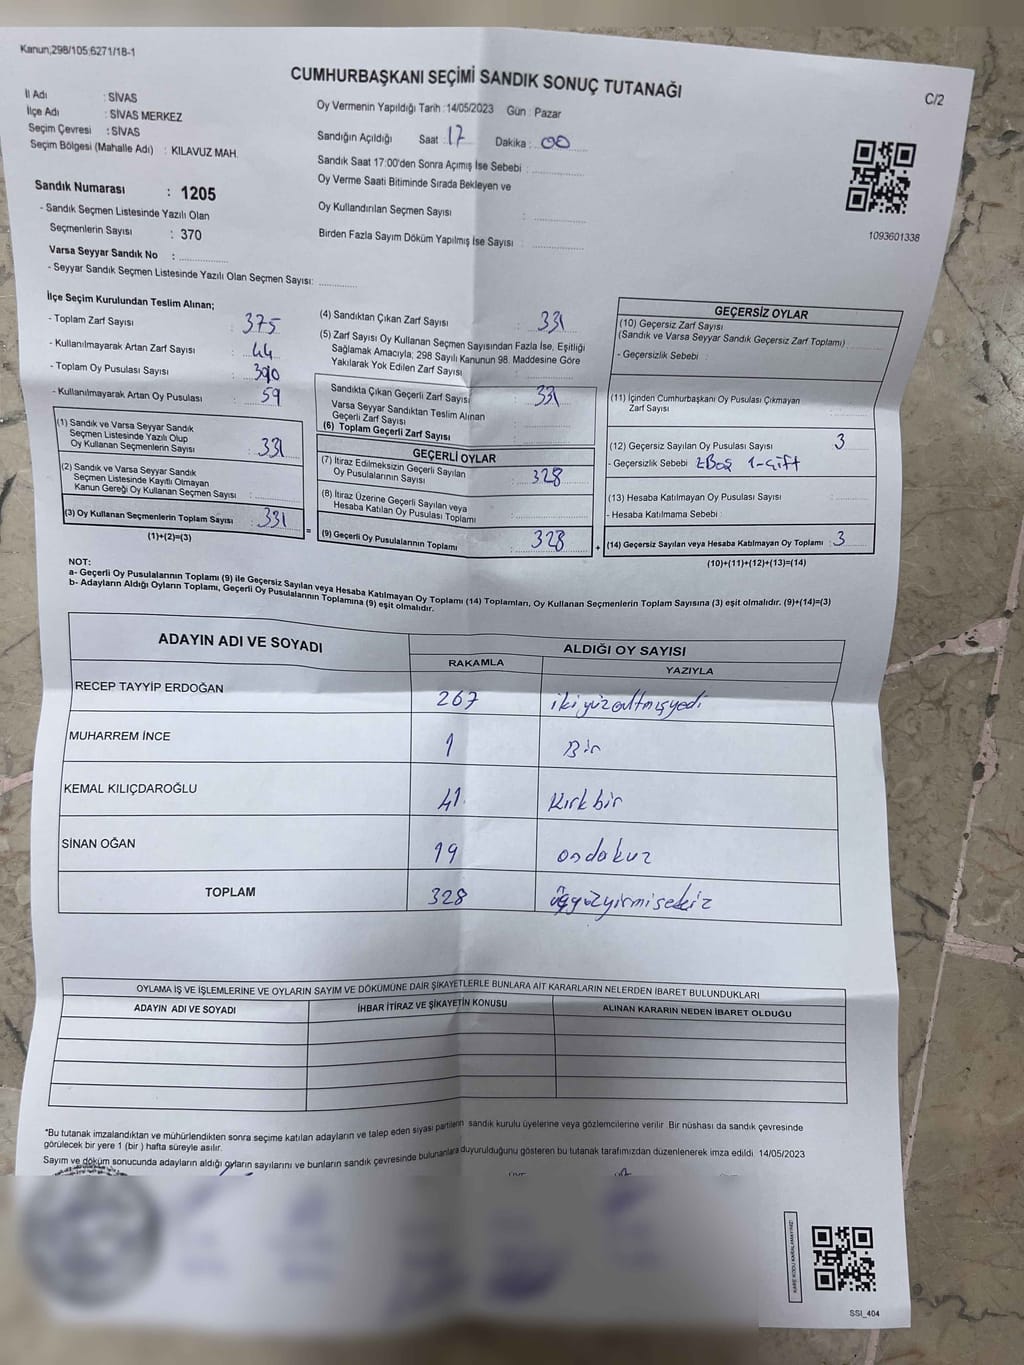 Kanun;298/105;6271/18-1
CUMHURBAŞKANI SEÇİMİ SANDIK SONUÇ TUTANAĞI
C/2
İl Adı : SİVAS
İlçe Adı : SİVAS MERKEZ
Seçim Çevresi : SİVAS
Seçim Bölgesi (Mahalle Adı) : KILAVUZ MAH.
Sandık Numarası : 1205
- Sandık Seçmen Listesinde Yazılı Olan
Seçmenlerin Sayısı : 370
Varsa Seyyar Sandık No :
- Seyyar Sandık Seçmen Listesinde Yazılı Olan Seçmen Sayısı:
Oy Vermenin Yapıldığı Tarih :14/05/2023 Gün : Pazar
Sandığın Açıldığı Saat : 17 Dakika : 00
Sandık Saat 17:00'den Sonra Açımış İse Sebebi :
Oy Verme Saati Bitiminde Sırada Bekleyen ve
Oy Kullandırılan Seçmen Sayısı :
Birden Fazla Sayım Döküm Yapılmış İse Sayısı :
1093601338
İlçe Seçim Kurulundan Teslim Alınan;
- Toplam Zarf Sayısı : 375
- Kullanılmayarak Artan Zarf Sayısı : 44
- Toplam Oy Pusulası Sayısı : 390
- Kullanılmayarak Artan Oy Pusulası : 59
(1) Sandık ve Varsa Seyyar Sandık
Seçmen Listesinde Yazılı Olup
Oy Kullanan Seçmenlerin Sayısı : 331
(2) Sandık ve Varsa Seyyar Sandık
Seçmen Listesinde Kayıtlı Olmayan
Kanun Gereği Oy Kullanan Seçmen Sayısı :
(3) Oy Kullanan Seçmenlerin Toplam Sayısı : 331
(1)+(2)=(3)
(4) Sandıktan Çıkan Zarf Sayısı : 331
(5) Zarf Sayısı Oy Kullanan Seçmen Sayısından Fazla İse, Eşitliği
Sağlamak Amacıyla; 298 Sayılı Kanunun 98. Maddesine Göre
Yakılarak Yok Edilen Zarf Sayısı :
Sandıkta Çıkan Geçerli Zarf Sayısı : 331
Varsa Seyyar Sandıktan Teslim Alınan
Geçerli Zarf Sayısı :
(6) Toplam Geçerli Zarf Sayısı
GEÇERLİ OYLAR
(7) İtiraz Edilmeksizin Geçerli Sayılan
Oy Pusulalarının Sayısı : 328
(8) İtiraz Üzerine Geçerli Sayılan veya
Hesaba Katılan Oy Pusulası Toplamı :
= (9) Geçerli Oy Pusulalarının Toplamı : 328
GEÇERSİZ OYLAR
(10) Geçersiz Zarf Sayısı
(Sandık ve Varsa Seyyar Sandık Geçersiz Zarf Toplamı)
- Geçersizlik Sebebi :
(11) İçinden Cumhurbaşkanı Oy Pusulası Çıkmayan
Zarf Sayısı
(12) Geçersiz Sayılan Oy Pusulası Sayısı : 3
- Geçersizlik Sebebi : 2Boş 1-Çift
(13) Hesaba Katılmayan Oy Pusulası Sayısı
- Hesaba Katılmama Sebebi :
+ (14) Geçersiz Sayılan veya Hesaba Katılmayan Oy Toplamı : 3
(10)+(11)+(12)+(13)=(14)
NOT:
a- Geçerli Oy Pusulalarının Toplamı (9) ile Geçersiz Sayılan veya Hesaba Katılmayan Oy Toplamı (14) Toplamları, Oy Kullanan Seçmenlerin Toplam Sayısına (3) eşit olmalıdır. (9)+(14)=(3)
b- Adayların Aldığı Oyların Toplamı, Geçerli Oy Pusulalarının Toplamına (9) eşit olmalıdır.
ADAYIN ADI VE SOYADI ALDIĞI OY SAYISI
RAKAMLA YAZIYLA
RECEP TAYYİP ERDOĞAN 267 ikiyüzaltmışyedi
MUHARREM İNCE 1 Bir
KEMAL KILIÇDAROĞLU 41 Kırkbir
SİNAN OĞAN 19 ondokuz
TOPLAM 328 üçyüzyirmisekiz
OYLAMA İŞ VE İŞLEMLERİNE VE OYLARIN SAYIM VE DÖKÜMÜNE DAİR ŞİKAYETLERLE BUNLARA AİT KARARLARIN NELERDEN İBARET BULUNDUKLARI
ADAYIN ADI VE SOYADI İHBAR İTİRAZ VE ŞİKAYETİN KONUSU ALINAN KARARIN NEDEN İBARET OLDUĞU
*Bu tutanak imzalandıktan ve mühürlendikten sonra seçime katılan adayların ve talep eden siyasi partilerin sandık kurulu üyelerine veya gözlemcilerine verilir. Bir nüshası da sandık çevresinde
görülecek bir yere 1 (bir) hafta süreyle asılır.
Sayım ve döküm sonucunda adayların aldığı oyların sayılarını ve bunların sandık çevresinde bulunanlara duyurulduğunu gösteren bu tutanak tarafımızdan düzenlenerek imza edildi. 14/05/2023
KARE KODU KARALAMAYINIZ!
SSI_404